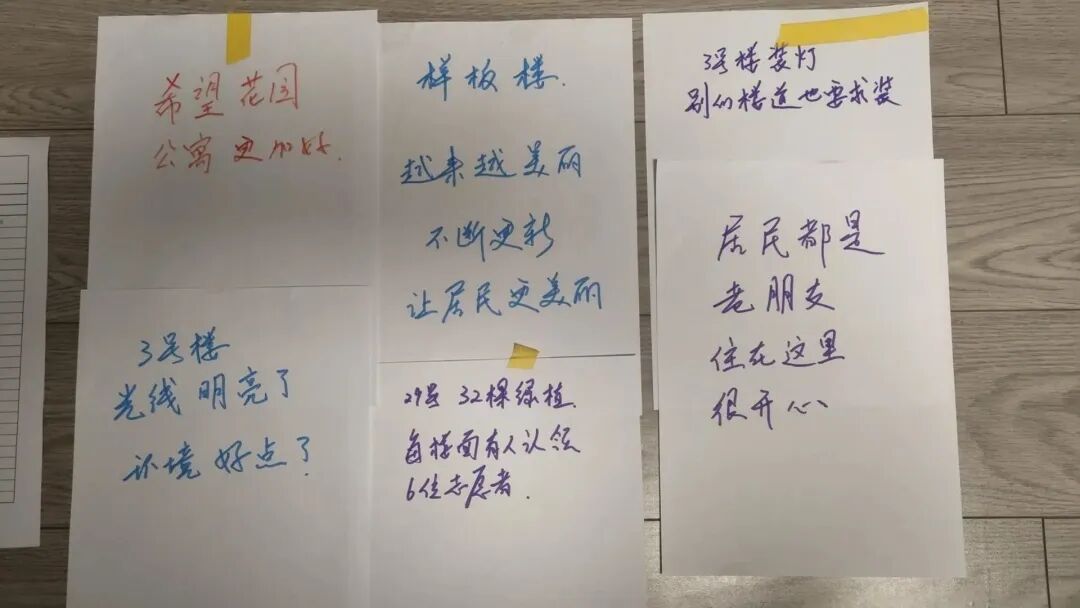 希望花园
公寓更加好.
样板楼.
越来越美丽
不断更新
让居民更美丽
3号楼装灯
别的楼道也要求装
3号楼
光线明亮了
环境好点了
29号 32棵绿植.
每楼面有人认领
6位志愿者.
居民都是
老朋友
住在这里
很开心